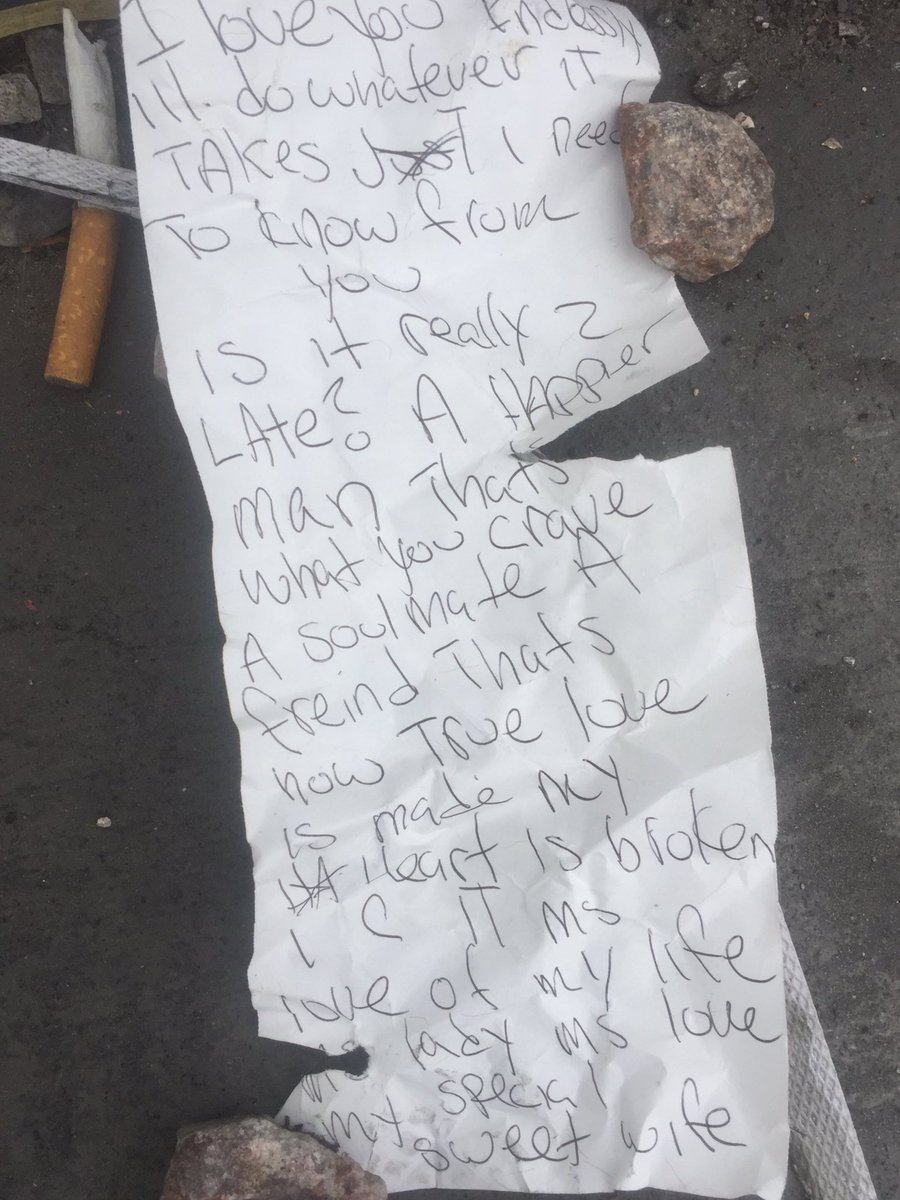 I love you Endlessly
I'll do whatever IT
TAKES JusT I need
To know from
you
IS IT really 2
LATe? A HAPPier
man Thats
what you crave
A soulmate A
freind Thats
how True love
is made my
Heart is broken
I C IT ms
love of my life
lady ms love
my special
sweet wife